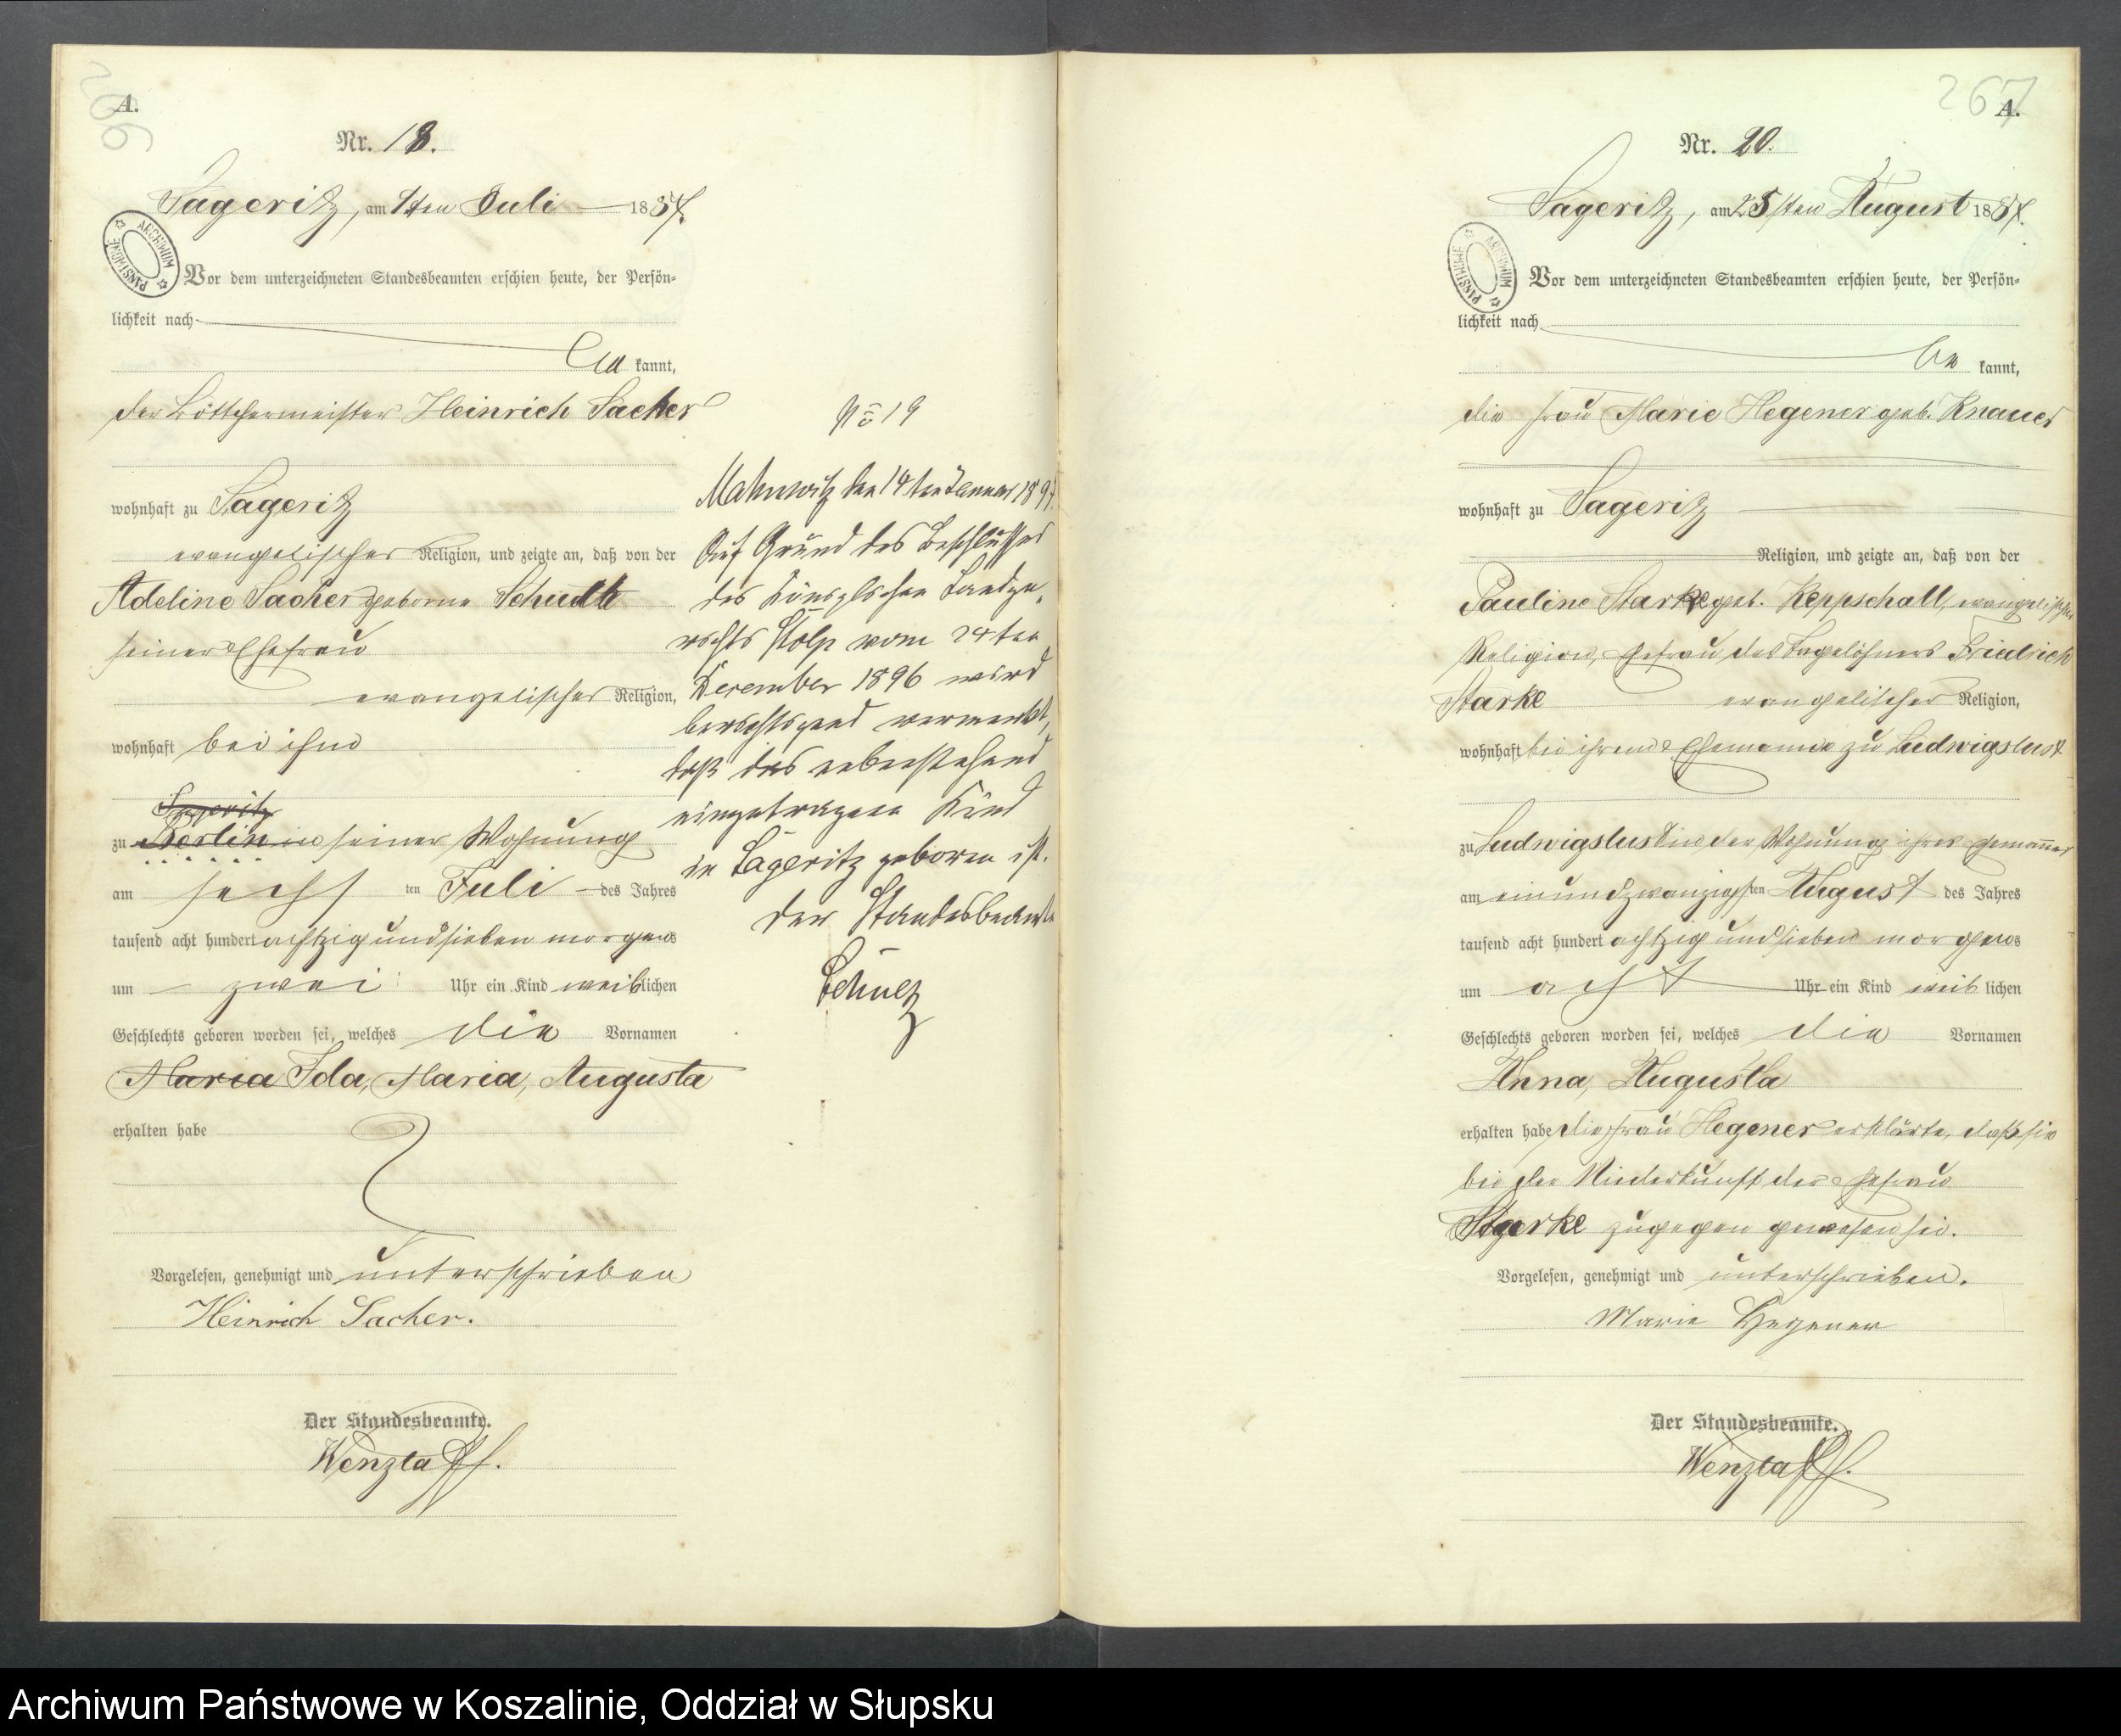 266
A.
Nr. 18.
Sageritz, am 7ten Juli 1887.
ARCHIWUM PAŃSTWOWE
Vor dem unterzeichneten Standesbeamten erschien heute, der Persön-
lichkeit nach
kannt,
der Böttchermeister Heinrich Sacher
wohnhaft zu Sageritz
evangelischer Religion, und zeigte an, daß von der
Adeline Sacher geborne
seiner Ehefrau
evangelischer Religion,
wohnhaft bei ihm
Sageritz
zu Berlin in seiner Wohnung
am sechs ten Juli des Jahres
tausend acht hundert achtzig und sieben morgens
um zwei Uhr ein Kind weiblichen
Geschlechts geboren worden sei, welches die Vornamen
Maria Ida, Maria, Augusta
erhalten habe
Vorgelesen, genehmigt und unterschrieben
Heinrich Sacher.
Der Standesbeamte.
Wenzlaff.
No 19
Mahnwitz den 14ten Januar 1897.
Auf Grund des Beschlusses
des Königlichen Landge-
richts Stolp vom 24ten
December 1896 wird
berichtigend vermerkt,
daß das nebenstehend
eingetragene Kind
in Sageritz geboren ist.
Der Standesbeamte
Schulz
267
A.
Nr. 20.
Sageritz, am 25sten August 1887.
ARCHIWUM PAŃSTWOWE
Vor dem unterzeichneten Standesbeamten erschien heute, der Persön-
lichkeit nach
be kannt,
die Frau Marie Hegener geb. Knauer
wohnhaft zu Sageritz
Religion, und zeigte an, daß von der
Pauline Starke geb. Reppschall, evangelischer
Religion, Ehefrau des Tagelöhners Friedrich
Starke evangelischer Religion,
wohnhaft bei ihrem Ehemanne zu Ludwigslust
zu Ludwigslust in der Wohnung ihres Ehemannes
am einundzwanzigsten August des Jahres
tausend acht hundert achtzig und sieben morgens
um acht Uhr ein Kind weib lichen
Geschlechts geboren worden sei, welches die Vornamen
Anna, Augusta
erhalten habe die Frau Hegener erklärte, daß sie
bei der Niederkunft der Ehefrau
Starke zugegen gewesen sei.
Vorgelesen, genehmigt und unterschrieben.
Marie Hegener
Der Standesbeamte.
Wenzlaff.
Archiwum Państwowe w Koszalinie, Oddział w Słupsku